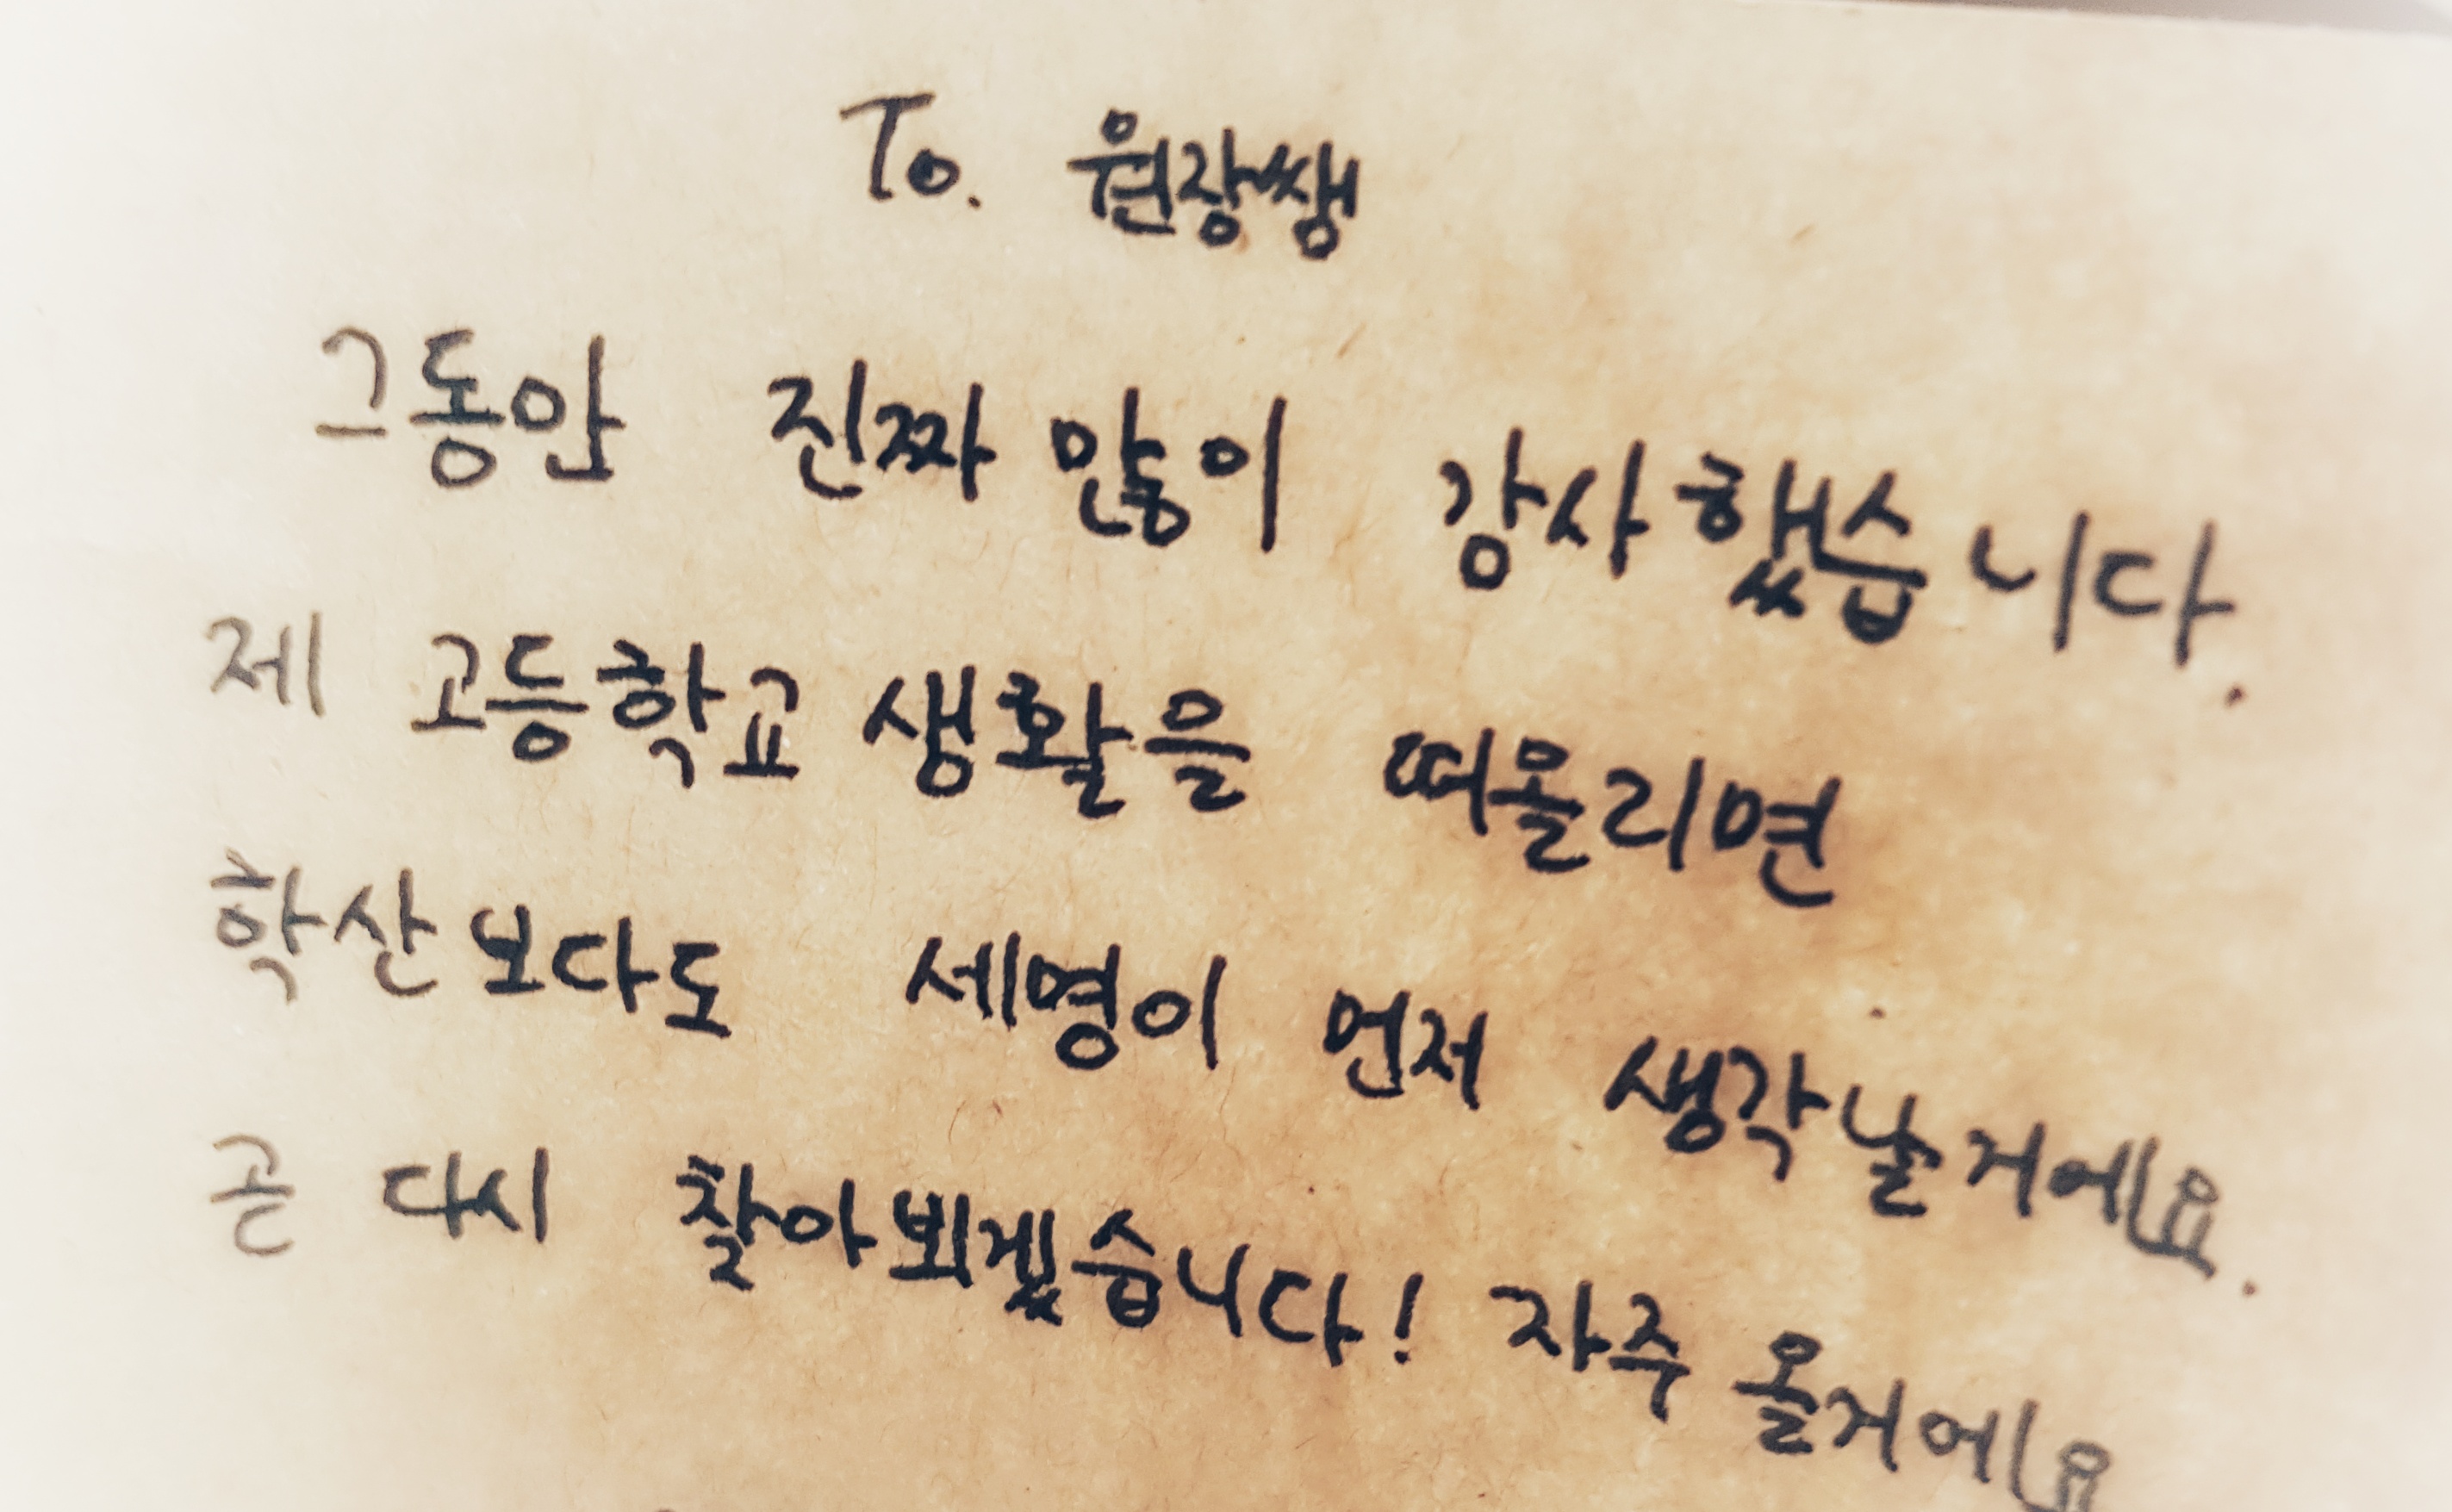 To. 원장쌤
그동안 진짜 많이 감사했습니다.
제 고등학교 생활을 떠올리면
학산보다도 세명이 먼저 생각날거에요.
곧 다시 찾아뵈겠습니다! 자주 올거에요